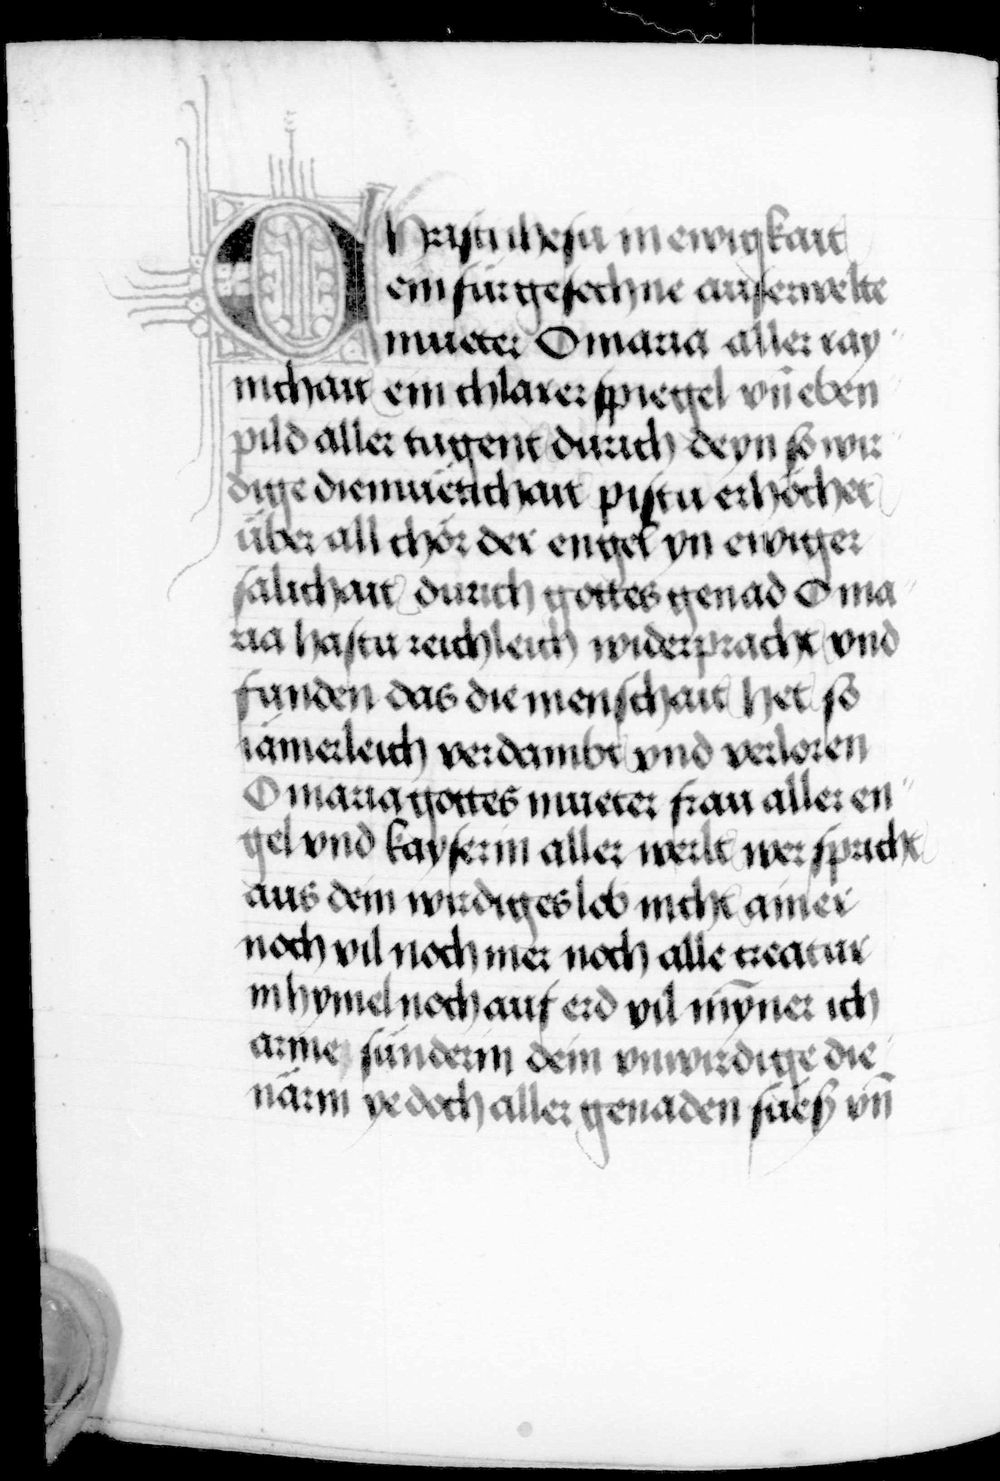 Christi ihesu in ewigkait
ein fürgesechne auserwelte
mueter O maria aller ray"
nichait ein chlarer spiegel vn̄ eben
pild aller tugent durich deyn so wir"
dige diemüetichait pistu erhöchet
über all chör der engel yn ewiger
sälichait durich gottes genad O ma"
ria hastu reichleich widerpracht vnd
funden das die menschait het so
iämerleich verdambt vnd verloren
O maria gottes mueter frau aller en"
gel vnd kayserin aller werlt wer spricht
aus dein wirdiges lob nicht ainer
noch vil noch mer noch alle creatur
in hymel noch auf erd vil myn̄er ich
arme sünderin dein vnwirdige die
närin ye doch aller genaden süeß vn̄